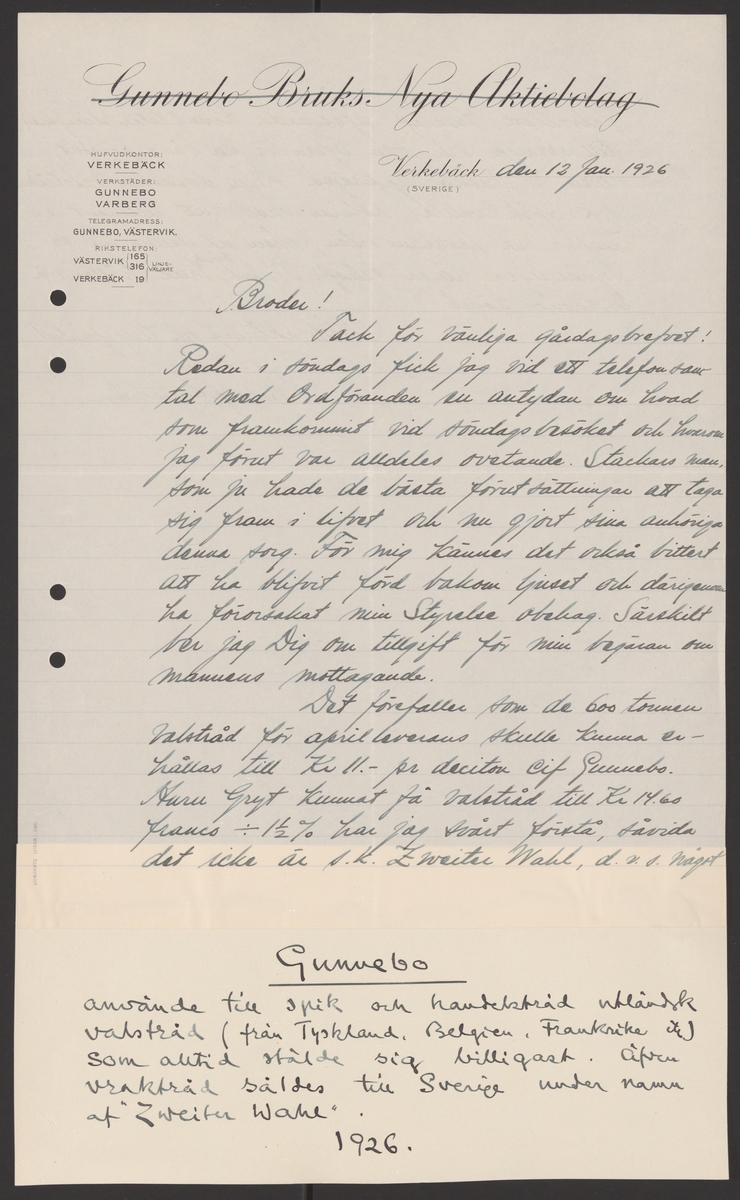 Gunnebo Bruks Nya Aktiebolag
HUFVUDKONTOR:
VERKEBÄCK
VERKSTÄDER:
GUNNEBO
VARBERG
TELEGRAMADRESS:
GUNNEBO, VÄSTERVIK.
RIKSTELEFON:
VÄSTERVIK 165 316 LINJE-VÄLJARE
VERKEBÄCK 19
Verkebäck den 12 Jan. 1926
(SVERIGE)
Broder!
Tack för vänliga gårdagsbrefvet!
Redan i söndags fick jag vid ett telefonsam-
tal med Ordföranden en antydan om hvad
som framkommit vid söndagsbesöket och hvarom
jag förut var alldeles ovetande. Stackars man,
som ju hade de bästa förutsättningar att taga
sig fram i lifvet och nu gjort sina anhöriga
denna sorg. För mig kännes det också bittert
att ha blifvit förd bakom ljuset och därigenom
ha förorsakat min Styrelse obehag. Särskilt
ber jag Dig om tillgift för min begäran om
mannens mottagande.
Det förefaller som de 600 tonnen
valstråd för aprilleverans skulle kunna er-
hållas till Kr 11.- pr deciton cif Gunnebo.
Huru Gryt kunnat få valstråd till Kr 14.60
franco ÷ 1½% har jag svårt förstå, såvida
det icke är s.k. Zweiter Wahl, d.v.s. något
Gunnebo
använde till spik och handelstråd utländsk
valstråd (från Tyskland, Belgien, Frankrike etc)
som alltid stälde sig billigast. Äfven
vraktråd såldes till Sverige under namn
af "Zweiter Wahl".
1926.